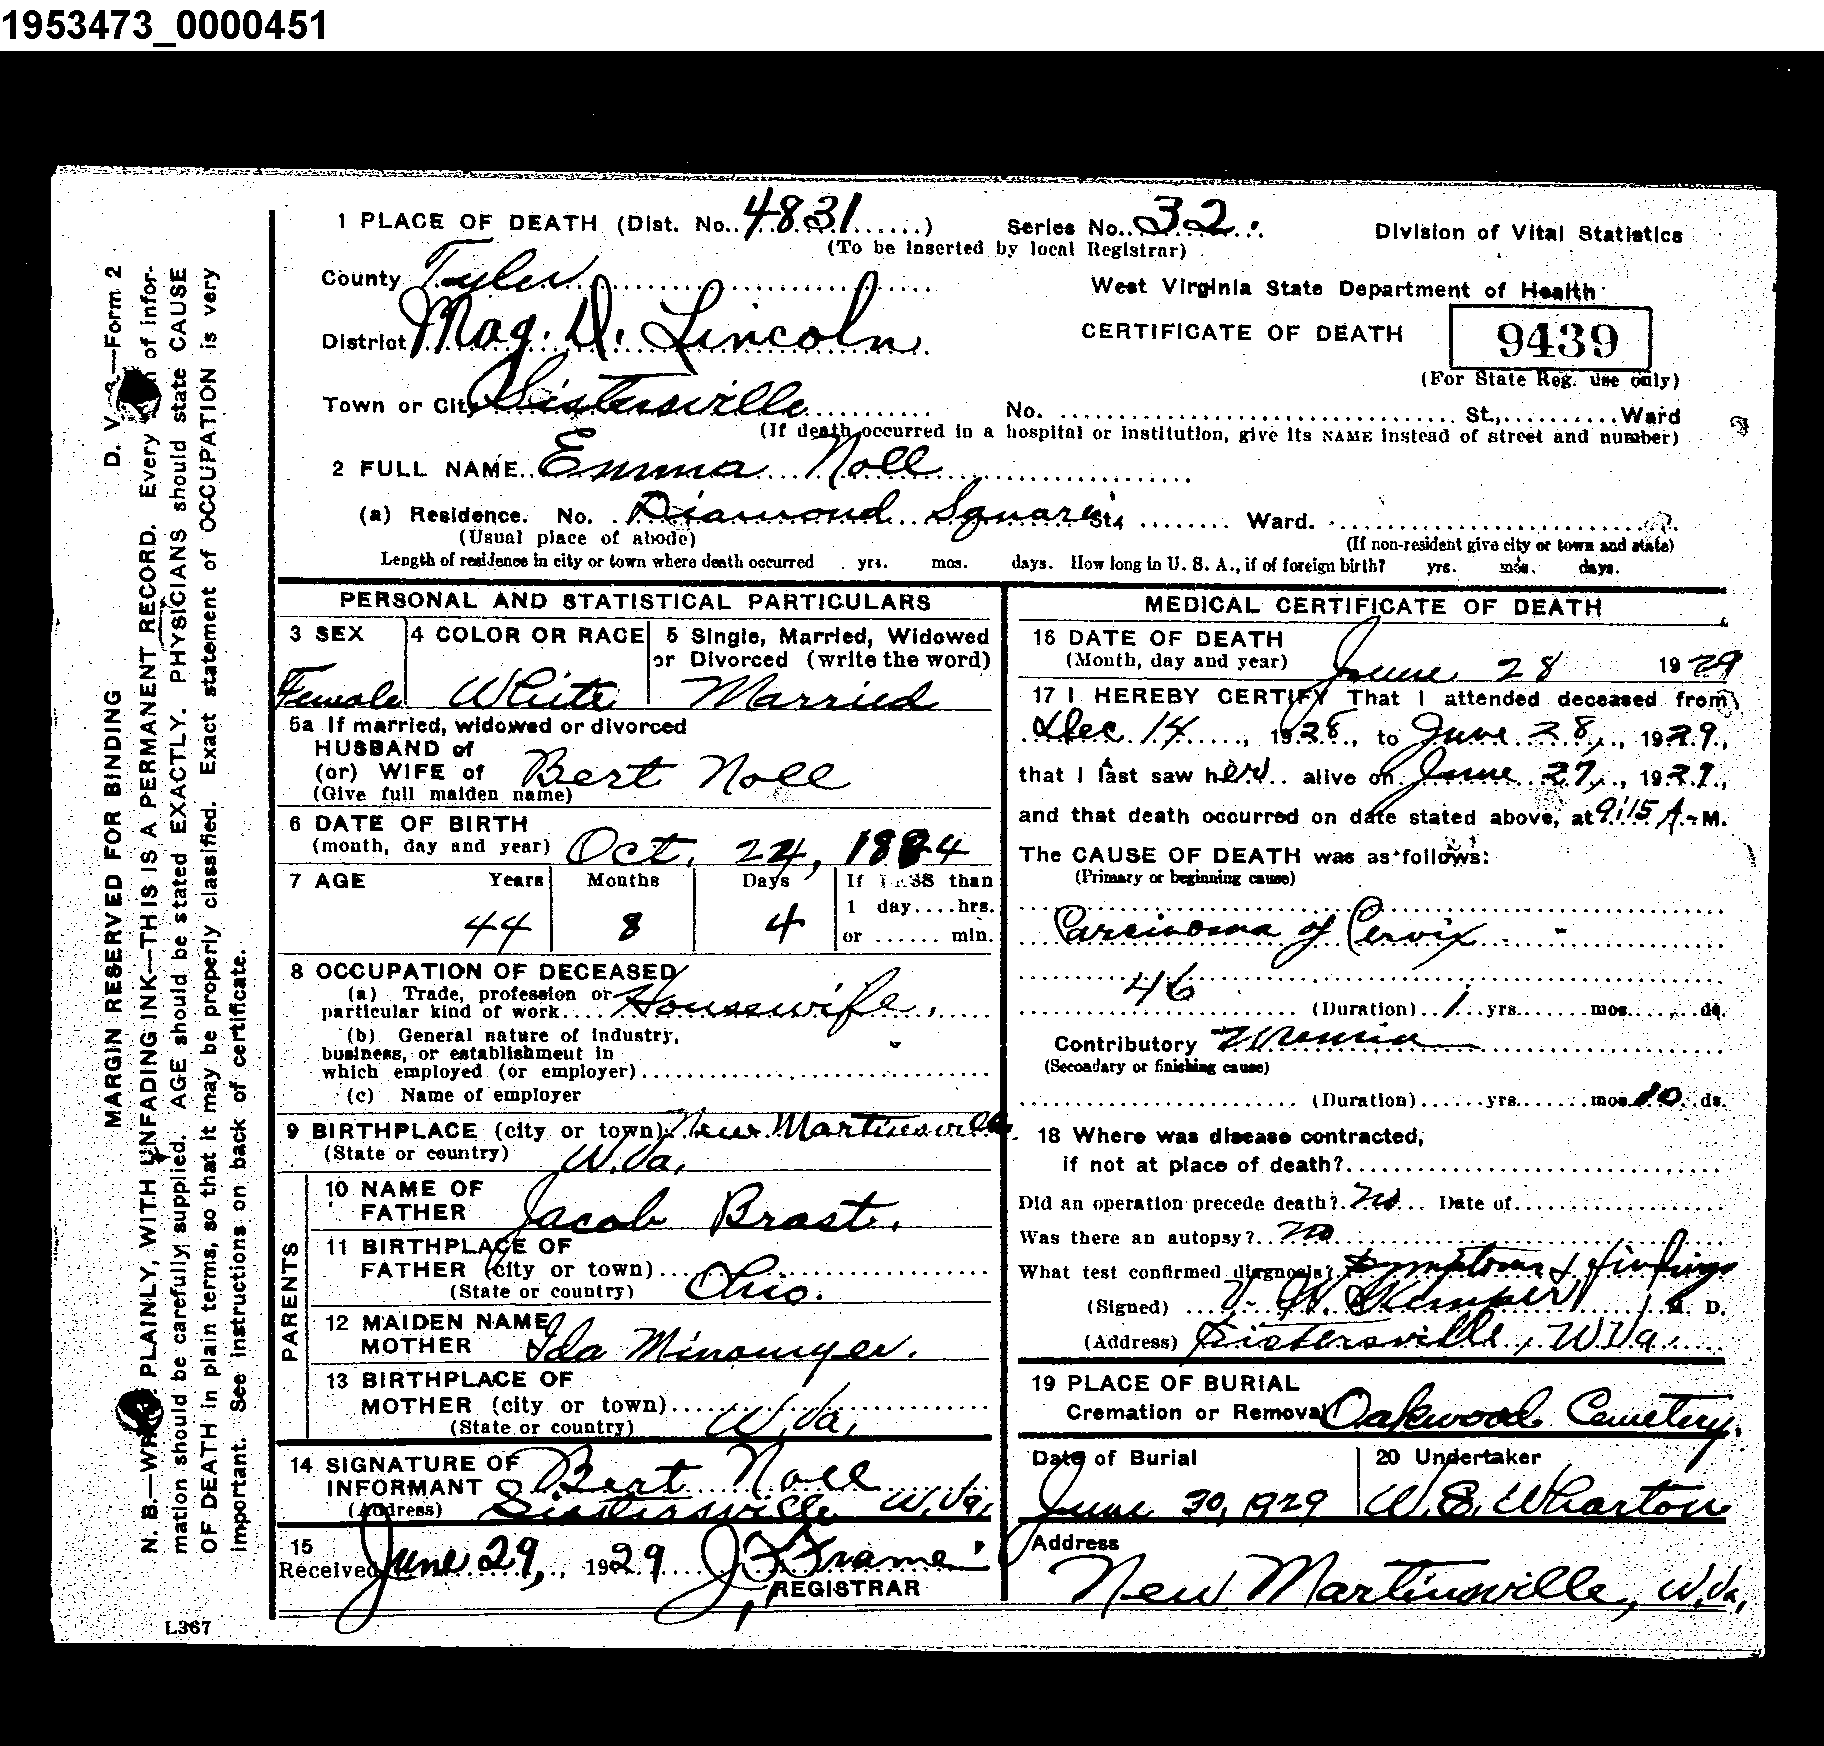 1953473_0000451
1 PLACE OF DEATH (Dist. No. 4831 ) Series No. 32. Division of Vital Statistics
(To be inserted by local Registrar)
County Tyler
West Virginia State Department of Health
District Mag. D. Lincoln
CERTIFICATE OF DEATH 9439
(For State Reg. use only)
Town or City Sistersville No. St., Ward
(If death occurred in a hospital or institution, give its NAME instead of street and number)
2 FULL NAME Emma Noll
(a) Residence. No. Diamond Square St. Ward.
(Usual place of abode) (If non-resident give city or town and state)
Length of residence in city or town where death occurred yrs. mos. days. How long in U. S. A., if of foreign birth? yrs. mos. days.
PERSONAL AND STATISTICAL PARTICULARS
3 SEX 4 COLOR OR RACE 5 Single, Married, Widowed
or Divorced (write the word)
Female White Married
5a If married, widowed or divorced
HUSBAND of
(or) WIFE of Bert Noll
(Give full maiden name)
6 DATE OF BIRTH
(month, day and year) Oct. 24, 1884
7 AGE Years Months Days If LESS than
1 day....hrs.
44 8 4 or ...... min.
8 OCCUPATION OF DECEASED
(a) Trade, profession or
particular kind of work Housewife.
(b) General nature of industry,
business, or establishment in
which employed (or employer)
(c) Name of employer
9 BIRTHPLACE (city or town) New Martinsville
(State or country) W. Va.
PARENTS
10 NAME OF
FATHER Jacob Brast.
11 BIRTHPLACE OF
FATHER (city or town)
(State or country) Ohio.
12 MAIDEN NAME
MOTHER Ida Minomyer.
13 BIRTHPLACE OF
MOTHER (city or town)
(State or country) W. Va.
14 SIGNATURE OF
INFORMANT Bert Noll
(Address) Sistersville W. Va.
15
Received June 29, 1929 J. F. Frame
REGISTRAR
L367
MEDICAL CERTIFICATE OF DEATH
16 DATE OF DEATH
(Month, day and year) June 28 1929
17 I HEREBY CERTIFY That I attended deceased from
Dec 14, 1928, to June 28, 1929,
that I last saw her alive on June 27, 1929,
and that death occurred on date stated above, at 9:15 A. M.
The CAUSE OF DEATH was as follows:
(Primary or beginning cause)
Carcinoma of Cervix
46
(Duration) 1 yrs. mos. ds.
Contributory Uremia
(Secondary or finishing cause)
(Duration) yrs. mos. 10 ds.
18 Where was disease contracted,
if not at place of death?
Did an operation precede death? No Date of
Was there an autopsy? No
What test confirmed diagnosis? Symptoms & findings
(Signed) M. D.
(Address) Sistersville, W. Va.
19 PLACE OF BURIAL
Cremation or Removal Oakwood Cemetery.
Date of Burial 20 Undertaker
June 30, 1929 W. E. Wharton
Address
New Martinsville, W. Va.
D. V. S.—Form 2
MARGIN RESERVED FOR BINDING
N. B.—WRITE PLAINLY, WITH UNFADING INK—THIS IS A PERMANENT RECORD. Every item of infor-
mation should be carefully supplied. AGE should be stated EXACTLY. PHYSICIANS should state CAUSE
OF DEATH in plain terms, so that it may be properly classified. Exact statement of OCCUPATION is very
important. See instructions on back of certificate.